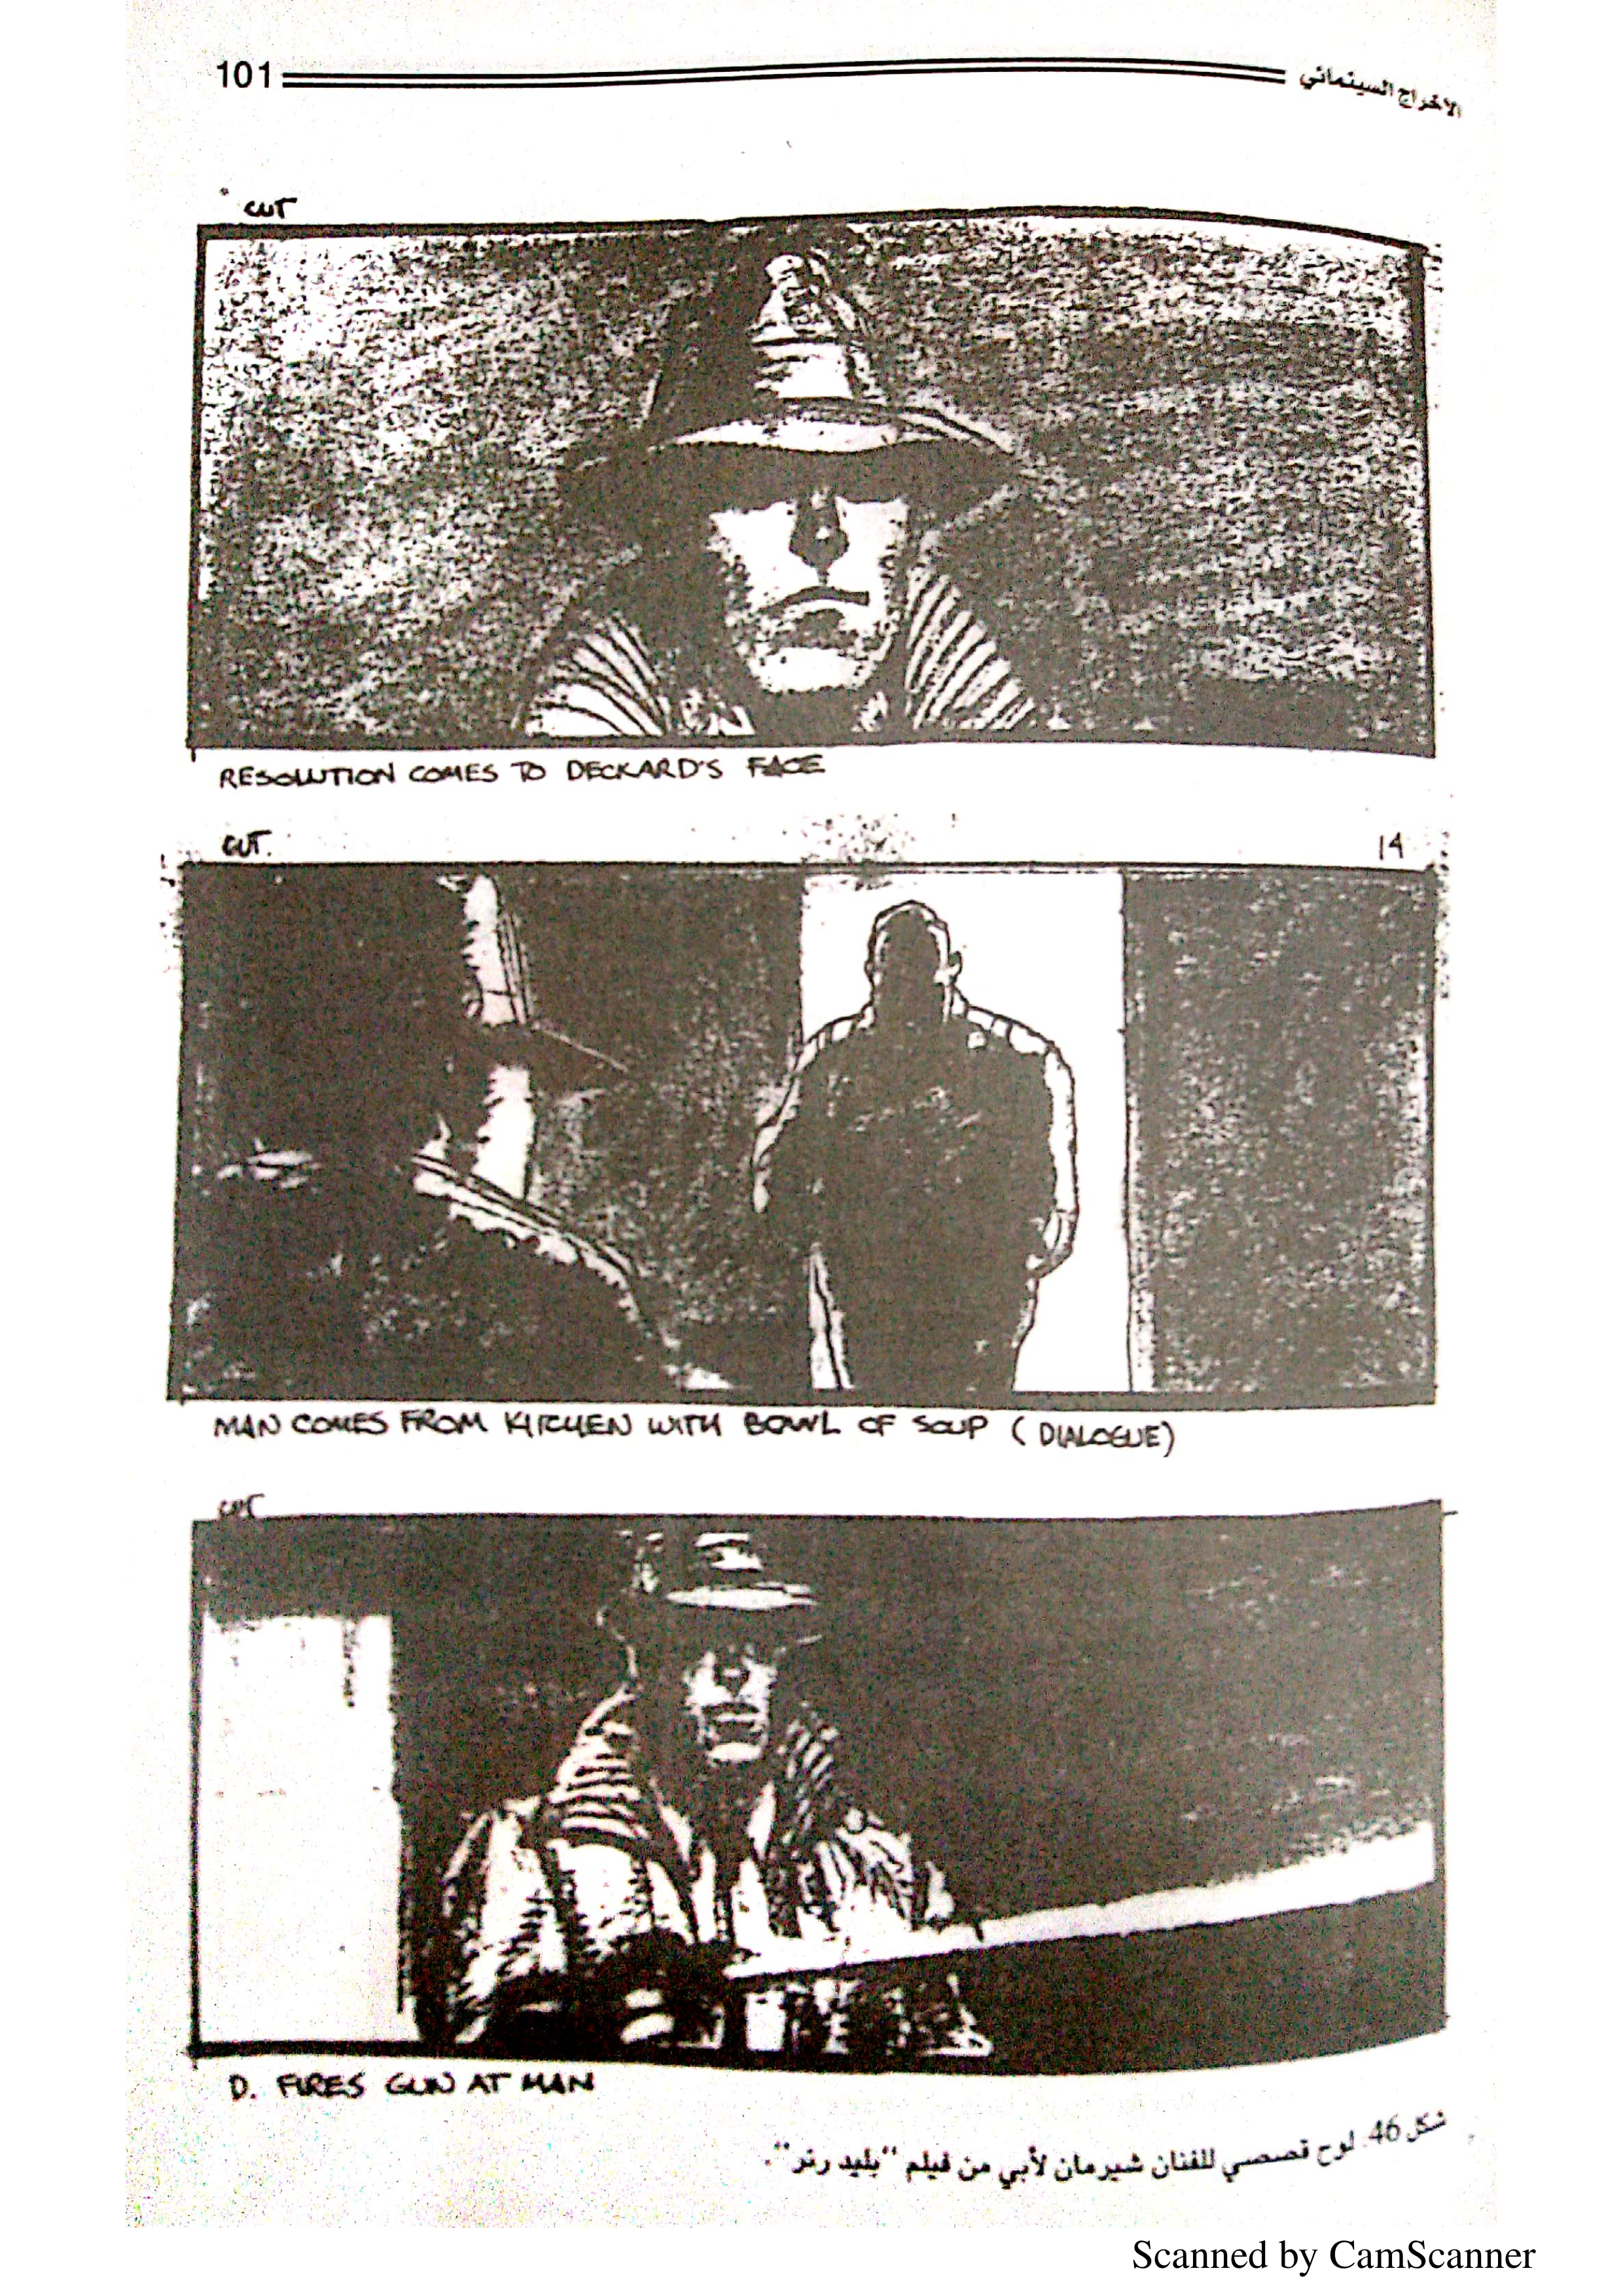 101
الاخراج السينمائي
CUT
RESOLUTION COMES TO DECKARD'S FACE
CUT.
14
MAN COMES FROM KITCHEN WITH BOWL OF SOUP (DIALOGUE)
CUT
D. FIRES GUN AT MAN
شكل 46. لوح قصصي للفنان شيرمان لأبي من فيلم "بليد رنر".
Scanned by CamScanner